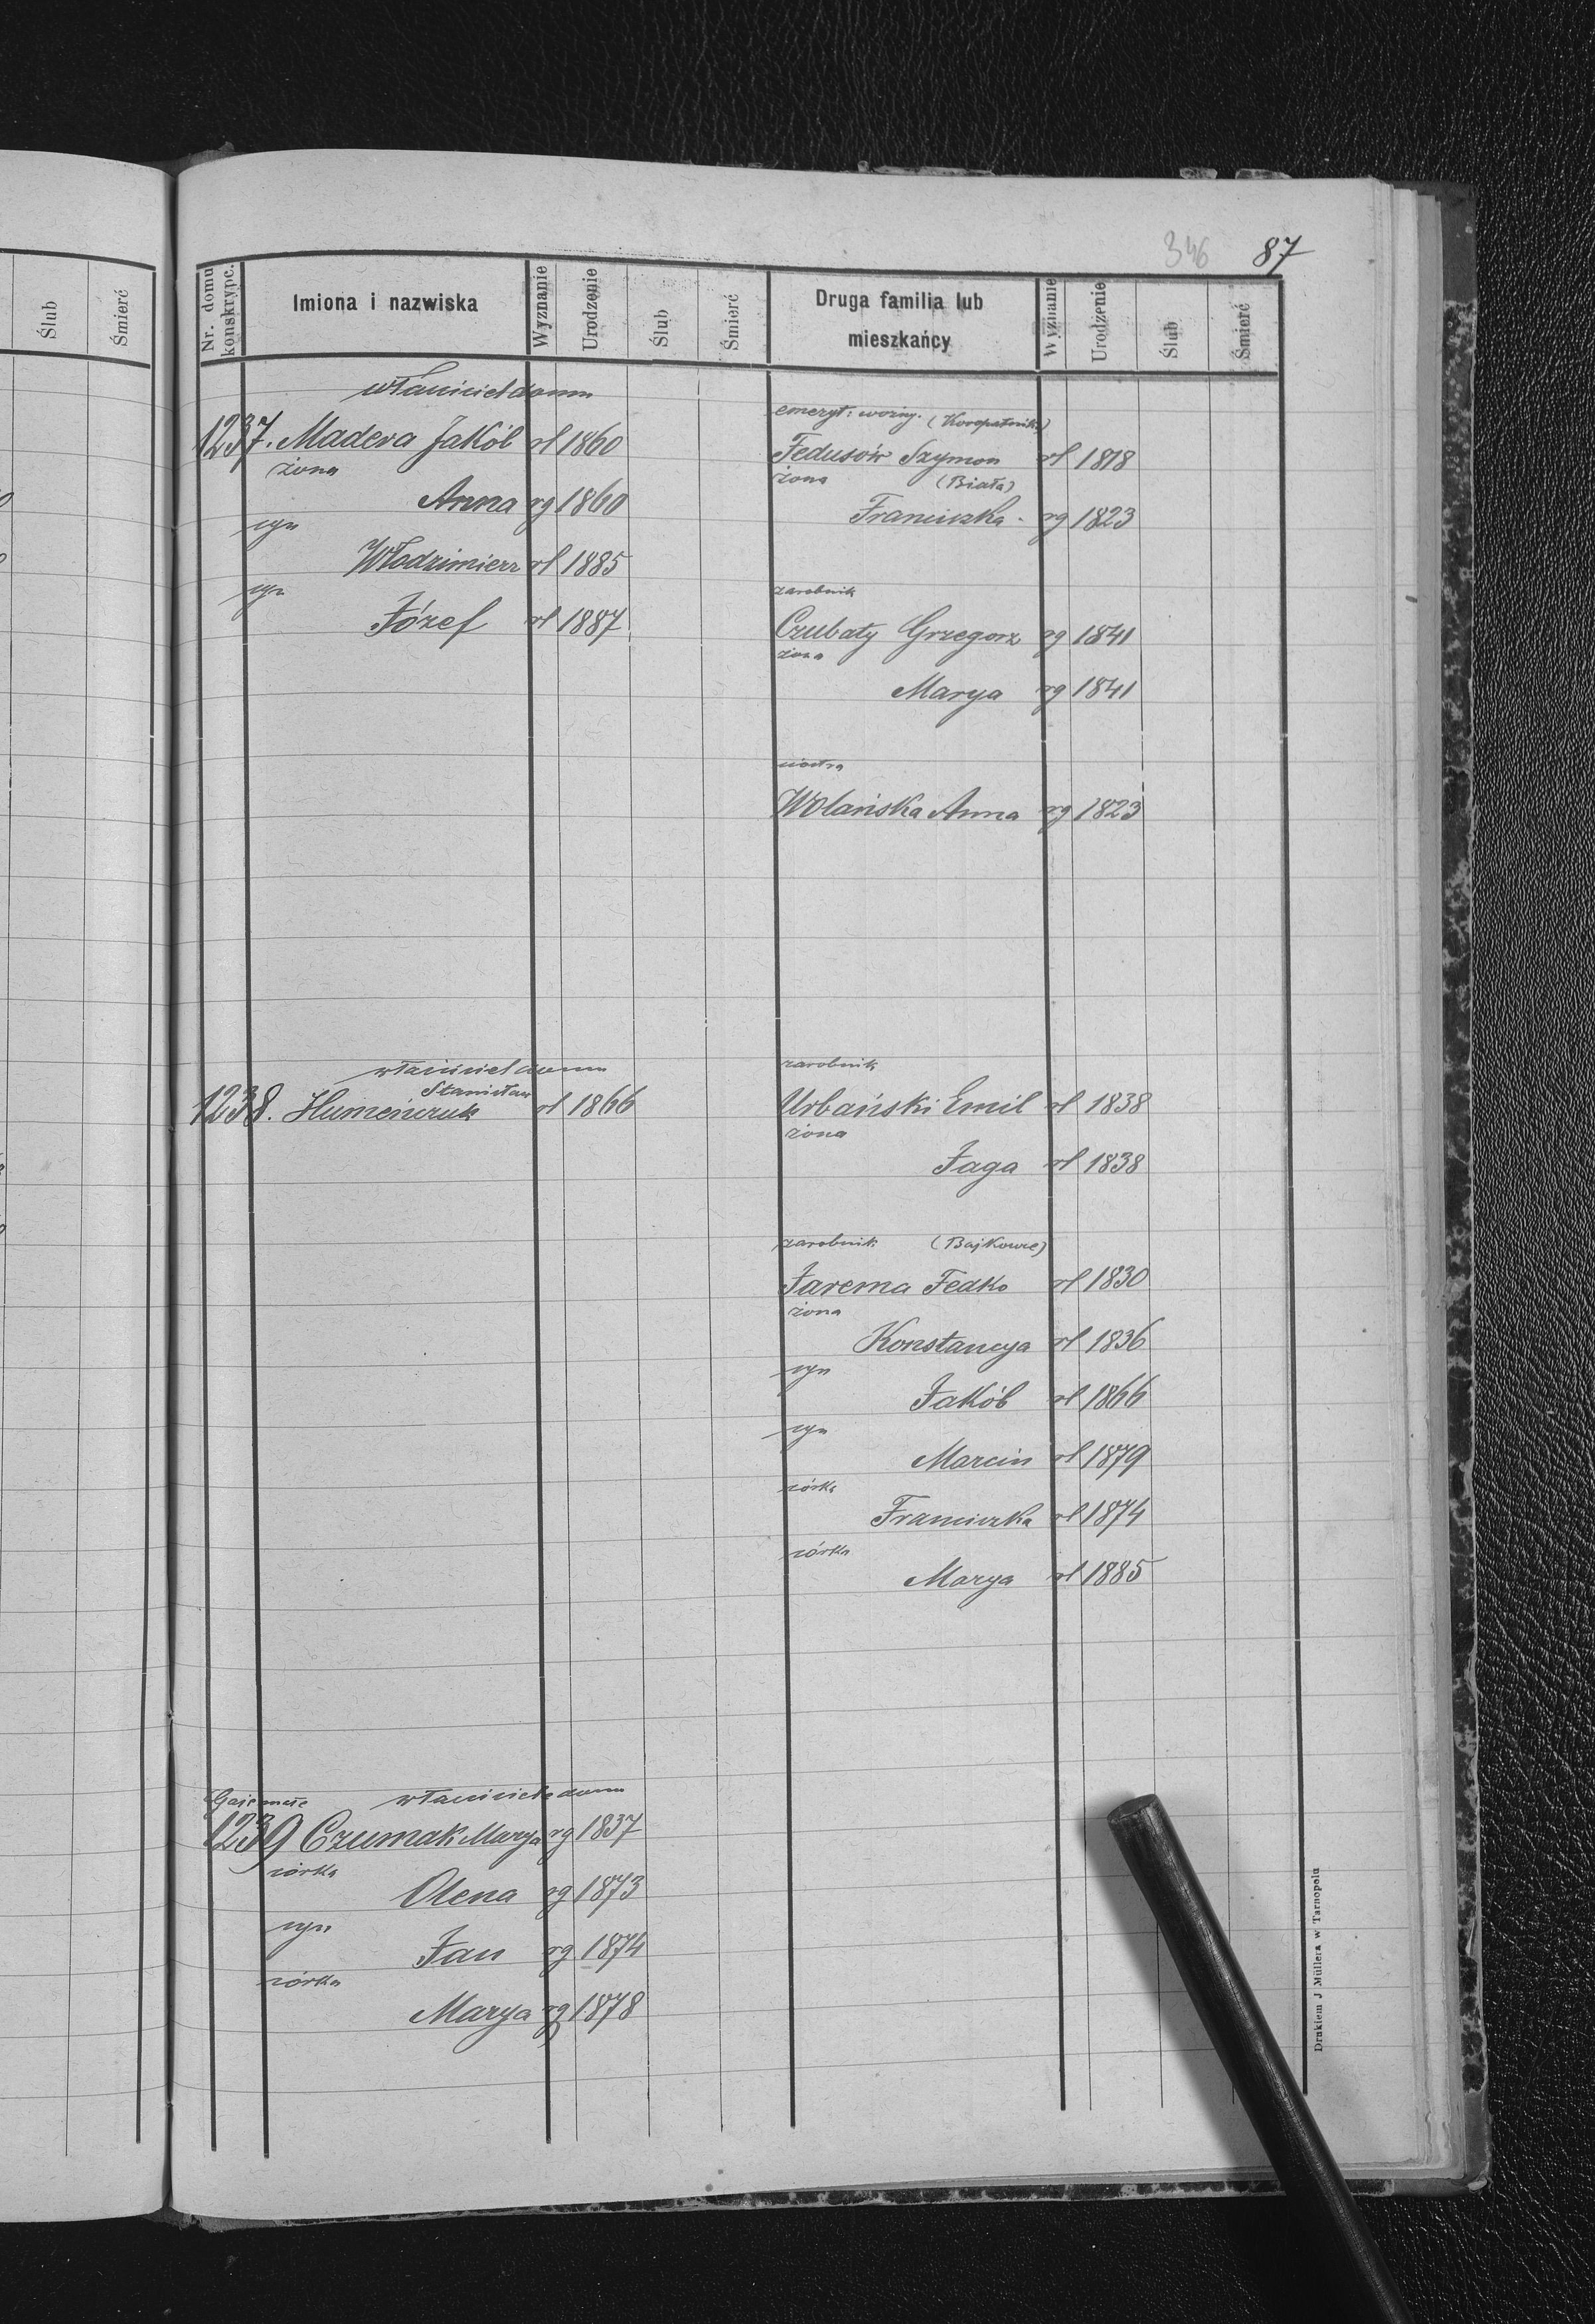 346 87
Ślub Śmierć
Nr. domu konskrypc. Imiona i nazwiska Wyznanie Urodzenie Ślub Śmierć Druga familia lub mieszkańcy Wyznanie Urodzenie Ślub Śmierć
właściciel domu
1237. Madera Jakób rl 1860
żona
Anna rg 1860
syn
Włodzimierz rl 1885
syn
Józef rl 1887
emeryt: woźny. (Koropatnik)
Fedusów Szymon rl 1818
żona (Biała)
Franciszka rg 1823
zarobnik
Czubaty Grzegorz rg 1841
żona
Marya rg 1841
siostra
Wolańska Anna rg 1823
właściciel domu
Stanisław
1238. Humeńczuk rl 1866
zarobnik
Urbański Emil rl 1838
żona
Jaga rl 1838
zarobnik (Bajkowce)
Jarema Fedko rl 1830
żona
Konstancya rl 1836
syn
Jakób rl 1866
syn
Marcin rl 1879
córka
Franciszka rl 1874
córka
Marya rl 1885
Gaje małe właściciela domu
1239 Czumak Marya rg 1837
córka
Olena rg 1873
syn
Jan rg 1874
córka
Marya rg 1878
Drukiem J Müllera w Tarnopolu